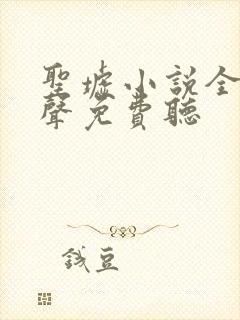 聖墟小說全
聲免費聽
錢豆